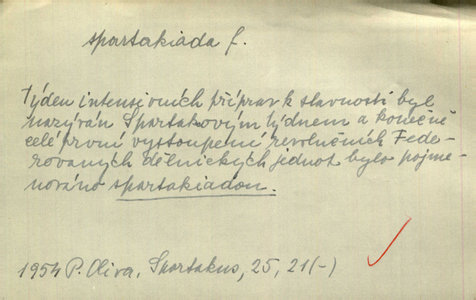 spartakiáda f.
Týden intensivních příprav k slavnosti byl
nazýván Spartakovým týdnem a konečně
celé první vystoupení revolučních Fede-
rovaných dělnických jednot bylo pojme-
nováno spartakiadou.
1954 P. Oliva, Spartakus, 25, 21 (-)